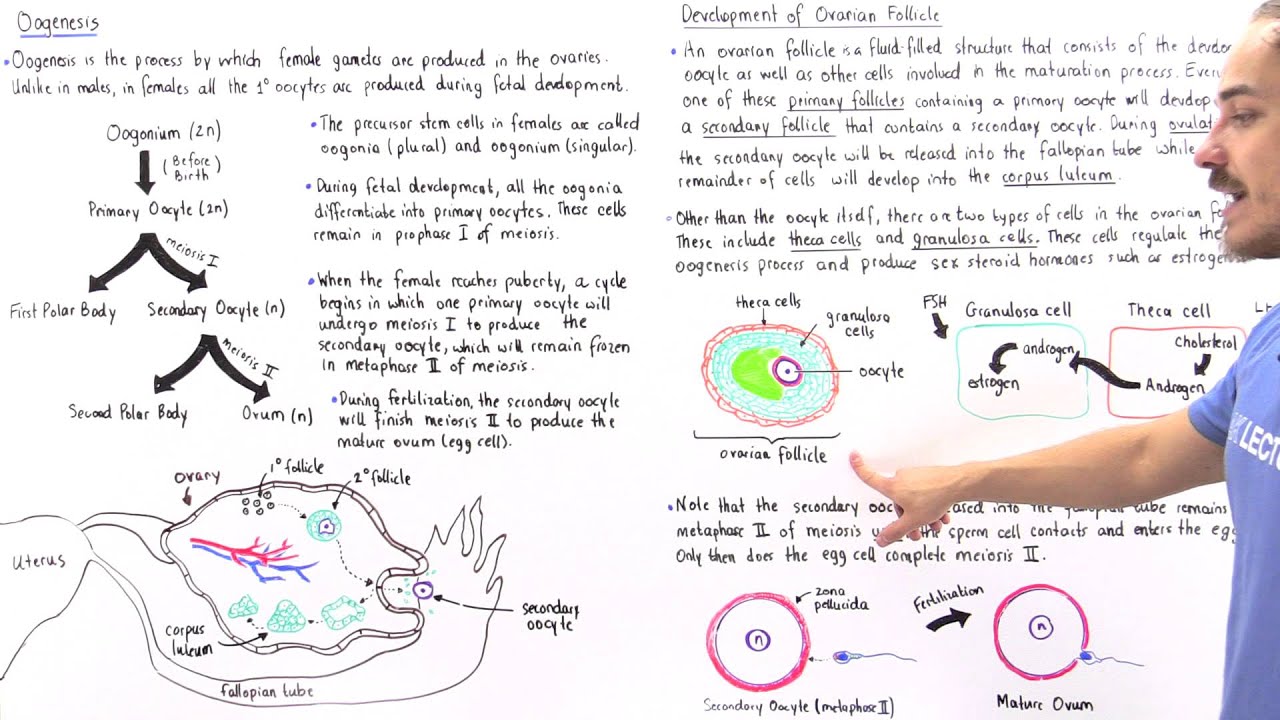 Oogenesis
• Oogenesis is the process by which female gametes are produced in the ovaries.
Unlike in males, in females all the 1° oocytes are produced during fetal development.
Oogonium (2n)
(Before
Birth)
Primary Oocyte (2n)
meiosis I
First Polar Body
Secondary Oocyte (n)
meiosis II
Second Polar Body
Ovum (n)
• The precursor stem cells in females are called
oogonia (plural) and oogonium (singular).
• During fetal development, all the oogonia
differentiate into primary oocytes. These cells
remain in prophase I of meiosis.
• When the female reaches puberty, a cycle
begins in which one primary oocyte will
undergo meiosis I to produce the
secondary oocyte, which will remain frozen
in metaphase II of meiosis.
• During fertilization, the secondary oocyte
will finish meiosis II to produce the
mature ovum (egg cell).
ovary
1° follicle
2° follicle
Uterus
corpus
luteum
secondary
oocyte
fallopian tube
Development of Ovarian Follicle
• An ovarian follicle is a fluid-filled structure that consists of the
oocyte as well as other cells involved in the maturation process.
one of these primary follicles containing a primary oocyte will develop
a secondary follicle that contains a secondary oocyte. During
the secondary oocyte will be released into the fallopian tube while
remainder of cells will develop into the corpus luteum.
• Other than the oocyte itself, there are two types of cells in the ovarian
These include theca cells and granulosa cells. These cells regulate the
oogenesis process and produce sex steroid hormones such as
theca cells
granulosa
cells
oocyte
ovarian follicle
FSH
Granulosa cell
androgen
estrogen
Theca cell
cholesterol
Androgen
• Note that the secondary into the fallopian tube remains
metaphase II of meiosis sperm cell contacts and enters the
Only then does the egg cell complete meiosis II.
zona
pellucida
n
Secondary Oocyte (metaphase II)
Fertilization
n
Mature Ovum
LECTU